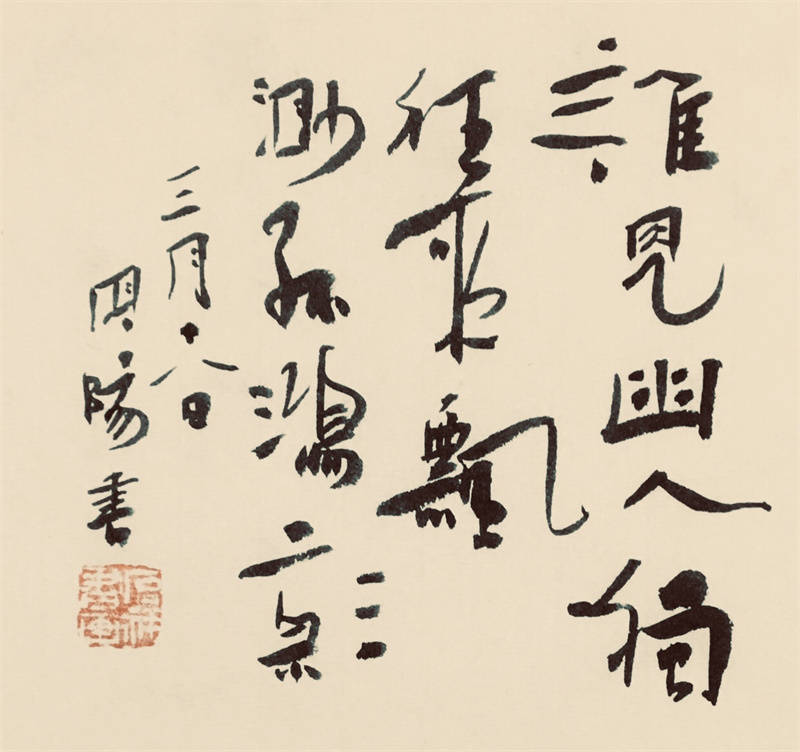 誰見幽人獨
往來飄
渺孤鴻影
三月十八日
陽書